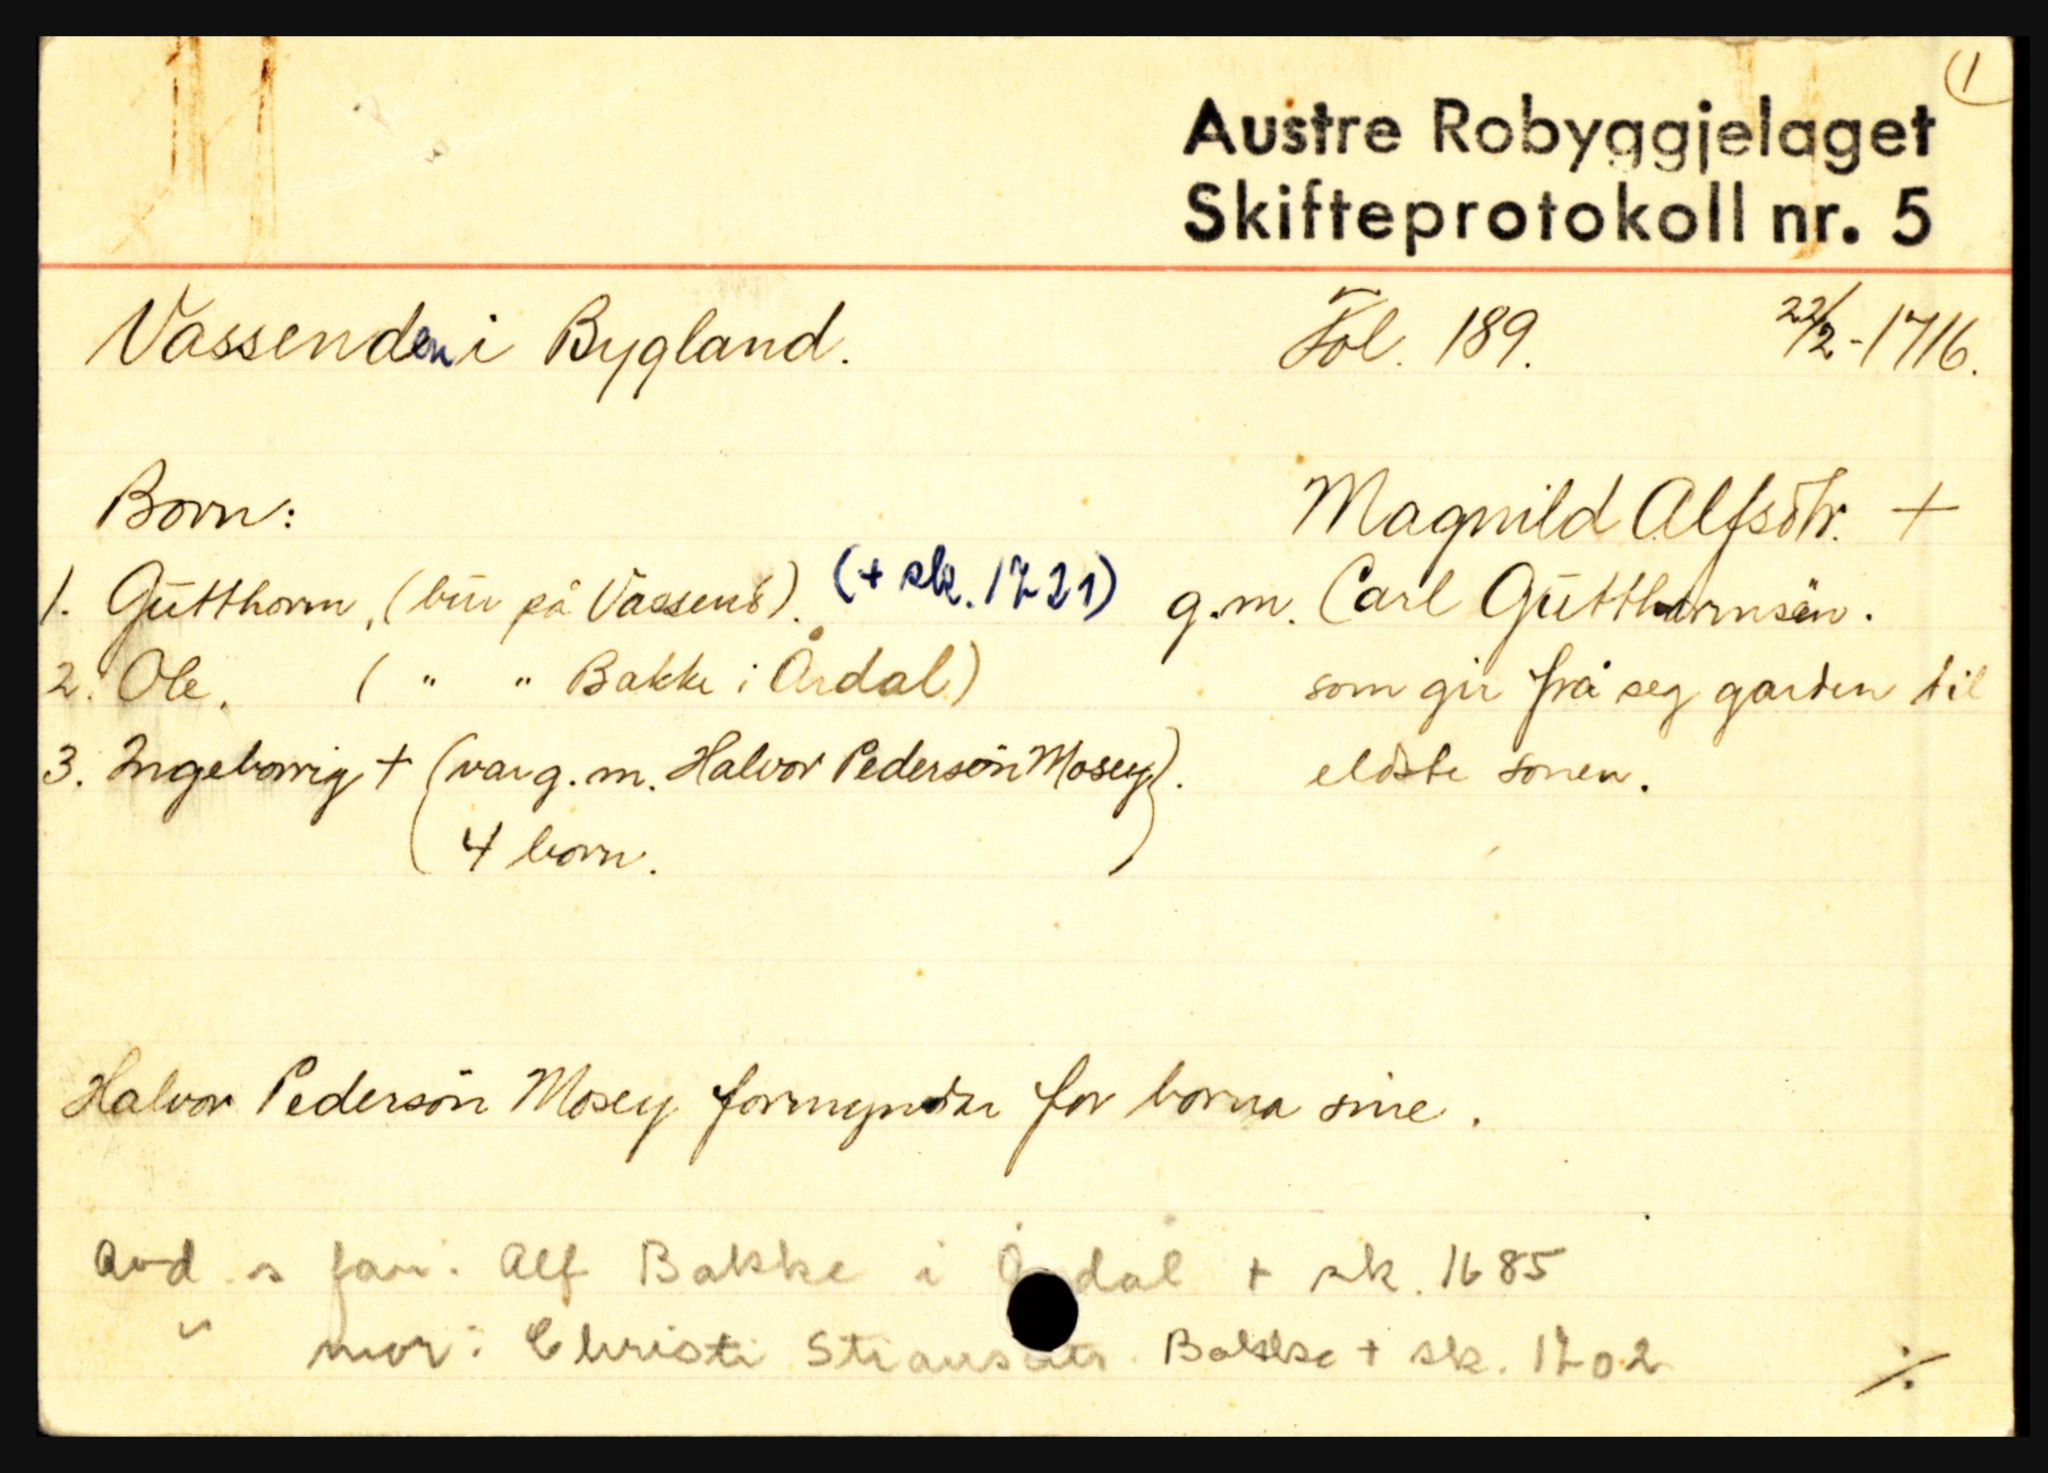 1
Austre Robyggjelaget
Skifteprotokoll nr. 5
Vassenden i Bygland. Fol. 189. 22/2-1716.
Born: Magnild Alfsdtr. +
1. Gutthorm, (bur på Vassend). (+ sk. 1721) g.m. Carl Gutthormsøn.
2. Ole. ( " " Bakke i Årdal) som gir frå seg garden til
3. Ingeborrig + (var g.m. Halvor Pedersøn Mosey). eldste sonen.
4 born.
Halvor Pedersøn Mosey formyndar for borna sine.
Avd. s far: Alf Bakke i Årdal + sk. 1685
" mor: Christi Bakke + sk. 1702
./.